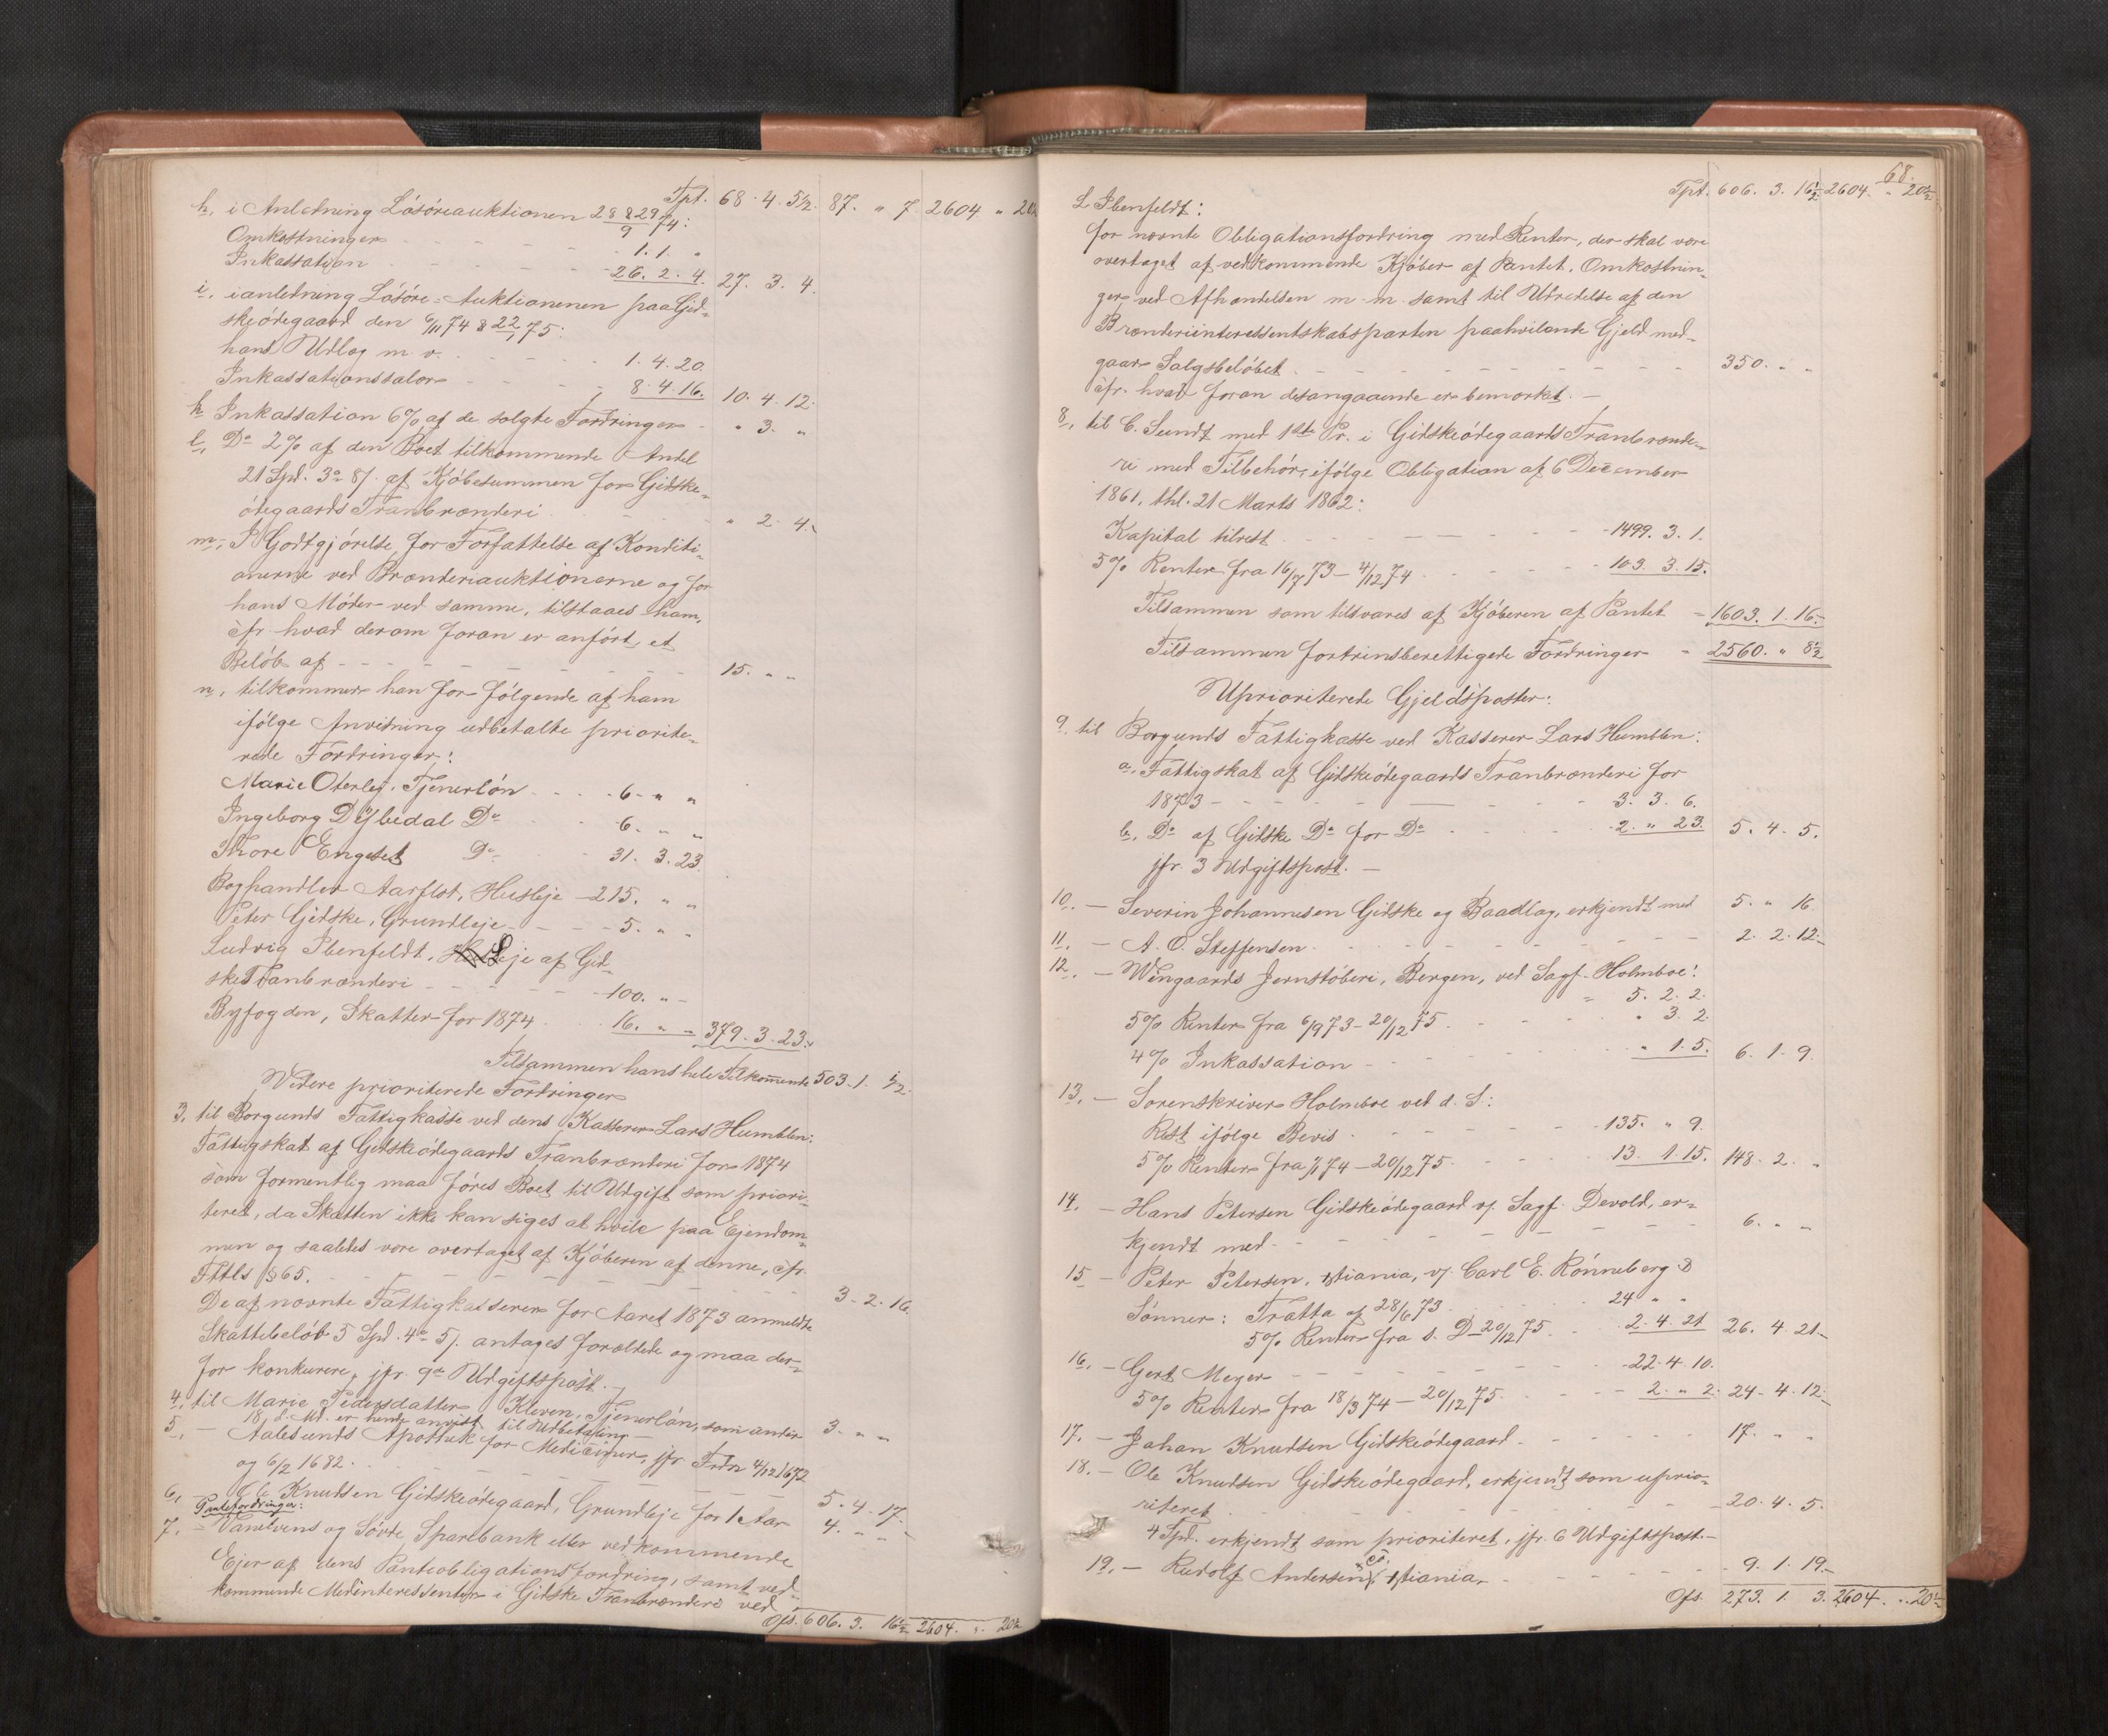 Tpt. 68. 4. 5½. 87. " 7. 2604 " 20½
h, i Anledning Løsøreauktionen 28 & 29/9 74:
Omkostninger - - - 1. 1. "
Inkassation - - - 26. 2. 4. 27. 3. 4.
i, ianledning Løsøre-Auktionenen paa Gjed-
skeødegaard den 6/11 74 & 22/1 75:
hans Udlæg m. v. - - - 1. 4. 20.
Inkassationssalær - - - 8. 4. 16. 10. 4. 12.
k, Inkassation 6% af de solgte Fordringer - " 3. "
l, Do 2% af den Boet tilkommende Andel
21 Spd. 3 o 8 s. af Kjøbesummen for Gidske-
ødegaards Tranbrænderi - - - " 2. 4.
m, I Godtgjørelse for Forfattelse af Konditi-
onerne ved Brænderiauktionerne og for
hans Møder ved samme, tilstaaes ham,
cfr. hvad derom foran er anført, et
Beløb af - - - 15. " "
n, tilkommer han for følgende af ham
ifølge Anvisning udbetalte priorite-
rede Fordringer:
Marie Oterlej, Tjenerløn - - - 6. " "
Ingeborg Dybedal Do - - 6. " "
Thore Engeset Do - - 31. 3. 23.
Boghandler Aarflot, Husleje - 215. " "
Peter Gidske, Grundleje - - - 5. " "
Ludvig Ibenfeldt, Leje af Gid-
ske Tranbrænderi - - - 100. " "
Byfogden, Skatter for 1874 - - 16. " " 379. 3. 23.
Tilsammen hans hele Tilkommende 503. 1. ½.
Videre prioriterede Fordringer
3, til Borgunds Fattigkasse ved dens Kasserer Lars Humblen:
Fattigskat af Gidskeødegaards Tranbrænderi for 1874
som formentlig maa føres Boet til Udgift som priori-
teret, da Skatten ikke kan siges at hvile paa Ejendom-
men og saaledes være overtaget af Kjøberen af denne, cfr.
Fttls § 65. - - - 3. 2. 16.
De af nævnte Fattigkasserer for Aaret 1873 anmeldte
Skattebeløb 5 Spd. 4 o 5 s. antages forældede og maa der-
for konkurere, jfr. 9de Udgiftspost.
4, til Marie Pedersdatter Kleven, Tjenerløn, som under
18 d. Md. er hende anvist til Udbetaling - 3. " "
5, - Aalesunds Apothek for Mediciner, jfr. Frdn 4/12 1672
og 6/2 1682. - - - 5. 4. 17.
6, - Ole Knudsen Gidskeødegaard, Grundleje for 1 Aar 4. " "
Pantefordringer:
7, - Vanelvens og Søvde Sparebank eller vedkommende
Ejer af dens Panteobligationsfordring, samt ved-
kommende Medinteressenter i Gidske Tranbrænderi ved
Ofs. 606. 3. 16½ 2604. " 20½
68.
Tpt. 606. 3. 16½ 2604. " 20½
L Ibenfeldt:
for nævnte Obligationsfordring med Renter, der skal være
overtaget af vedkommende Kjøber af Pantet, Omkostnin-
ger ved Afhændelsen m. m. samt til Udredelse af den
Brænderiinteressentskabsparten paahvilende Gjeld med-
gaar Salgsbeløbet - - - 350. " "
cfr. hvad foran desangaaende er bemærket. -
8, til C. Sundt med 1ste Pr. i Gidskeødegaards Tranbrænde-
ri med Tilbehør, ifølge Obligation af 6 December
1861, thl. 21 Marts 1862:
Kapital tilrest - - - 1499. 3. 1.
5% Renter fra 16/7 73 - 4/12 74 - - - 103. 3. 15.
Tilsammen som tilsvares af Kjøberen af Pantet = 1603. 1. 16.
Tilsammen fortrinsberettigede Fordringer - 2560. " 8½
Uprioriterede Gjeldsposter:
9, til Borgunds Fattigkasse ved Kasserer Lars Humblen:
a, Fattigskat af Gidskeødegaards Tranbrænderi for
1873 - - - 3. 3. 6.
b, Do af Gidske Do for Do - - - 2. " 23. 5. 4. 5.
jfr. 3 Udgiftspost. -
10, - Severin Johannesen Gidske og Baadlag, erkjendt med 5. " 16.
11, - A. O. Steffensen - - - 2. 2. 12.
12, - Wingaards Jernstøberi, Bergen, ved Sagf. Holmboe:
" 5. 2. 2.
5% Renter fra 6/9 73 - 20/12 75 - - - " 3. 2.
4% Inkassation - - - " 1. 5. 6. 1. 9.
13, - Sorenskriver Holmboe ved d. S:
Rest ifølge Bevis - - - 135. " 9.
5% Renter fra 1/1 74 - 20/12 75 - - - 13. 1. 15. 148. 2. "
14, - Hans Petersen Gidskeødegaard v/ Sagf. Devold, er-
kjendt med - - - 6. " "
15 - Peter Petersen, Xtiania, v/ Carl E. Rønneberg &
Sønner: Tratta af 28/6 73 - - - 24 " "
5% Renter fra s. D - 20/12 75 - - 2. 4. 21 26. 4. 21.
16, - Gert Meyer - - - 22. 4. 10.
5% Renter fra 18/3 74 - 20/12 75 - - - 2. " 2. 24. 4. 12.
17, - Johan Knudsen Gidskeødegaard - - - 17. " "
18, - Ole Knudsen Gidskeødegaard, erkjendt som uprio-
riteret - - - 20. 4. 5.
4 Spd. erkjendt som prioriteret, jfr. 6 Udgiftspost. -
19, - Rudolf Andersen, Xtiania - - - 9. 1. 19.
Ofs. 273. 1. 3. 2604. " 20½